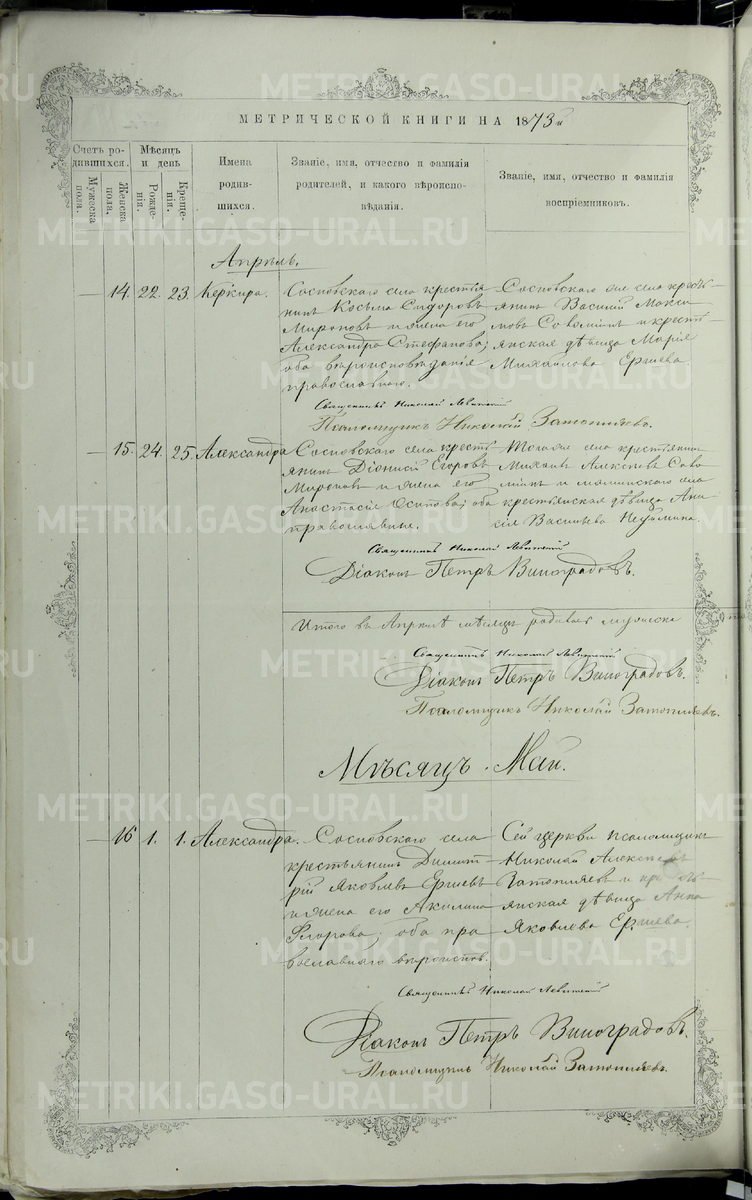 МЕТРИЧЕСКОЙ КНИГИ НА 1873й
Счетъ родившихся.
Мужеска пола.
Женска пола.
Мѣсяцъ и день
Рожденія.
Крещенія.
Имена родившихся.
Званіе, имя, отчество и фамилія родителей, и какого вѣроисповѣданія.
Званіе, имя, отчество и фамилія воспріемниковъ.
Апрѣль.
14. 22. 23. Керкира.
Сосновскаго села крестья
нинъ Косьма Сидоровъ
Мироновъ и жена его
Александра Стефанова;
оба вѣроисповѣданія
православнаго.
Сосновскаго же села кресть
янинъ Василій Макси
мовъ Совминъ и кресть
янская дѣвица Марія
Михайлова Ершева.
Священникъ Николай Левитскій
Псаломщикъ Николай Затопляевъ.
15. 24. 25. Александра
Сосновскаго села кресть
янинъ Діонисій Егоровъ
Мироновъ и жена его
Анастасія Осипова; оба
православные.
Тогоже села крестьянинъ
Михаилъ Алексѣевъ Сов
минъ и села
крестьянская дѣвица
Васильева
Священникъ Николай Левитскій
Діаконъ Петръ Виноградовъ.
Итого въ Апрѣлѣ мѣсяцѣ родилось мужеска
Священникъ Николай Левитскій
Діаконъ Петръ Виноградовъ.
Псаломщикъ Николай Затопляевъ.
Мѣсяцъ Май.
16 1. 1. Александра.
Сосновскаго села
крестьянинъ Димит
рій Яковлевъ Ершевъ
и жена его Акилина
Егорова; оба пра
вославнаго вѣроисп.
Сей церкви псаломщикъ
Николай Алексѣевъ
Затопляевъ и
янская дѣвица Анна
Яковлева Ершева.
Священникъ Николай Левитскій
Діаконъ Петръ Виноградовъ.
Псаломщикъ Николай Затопляевъ.
METRIKI.GASO-URAL.RU